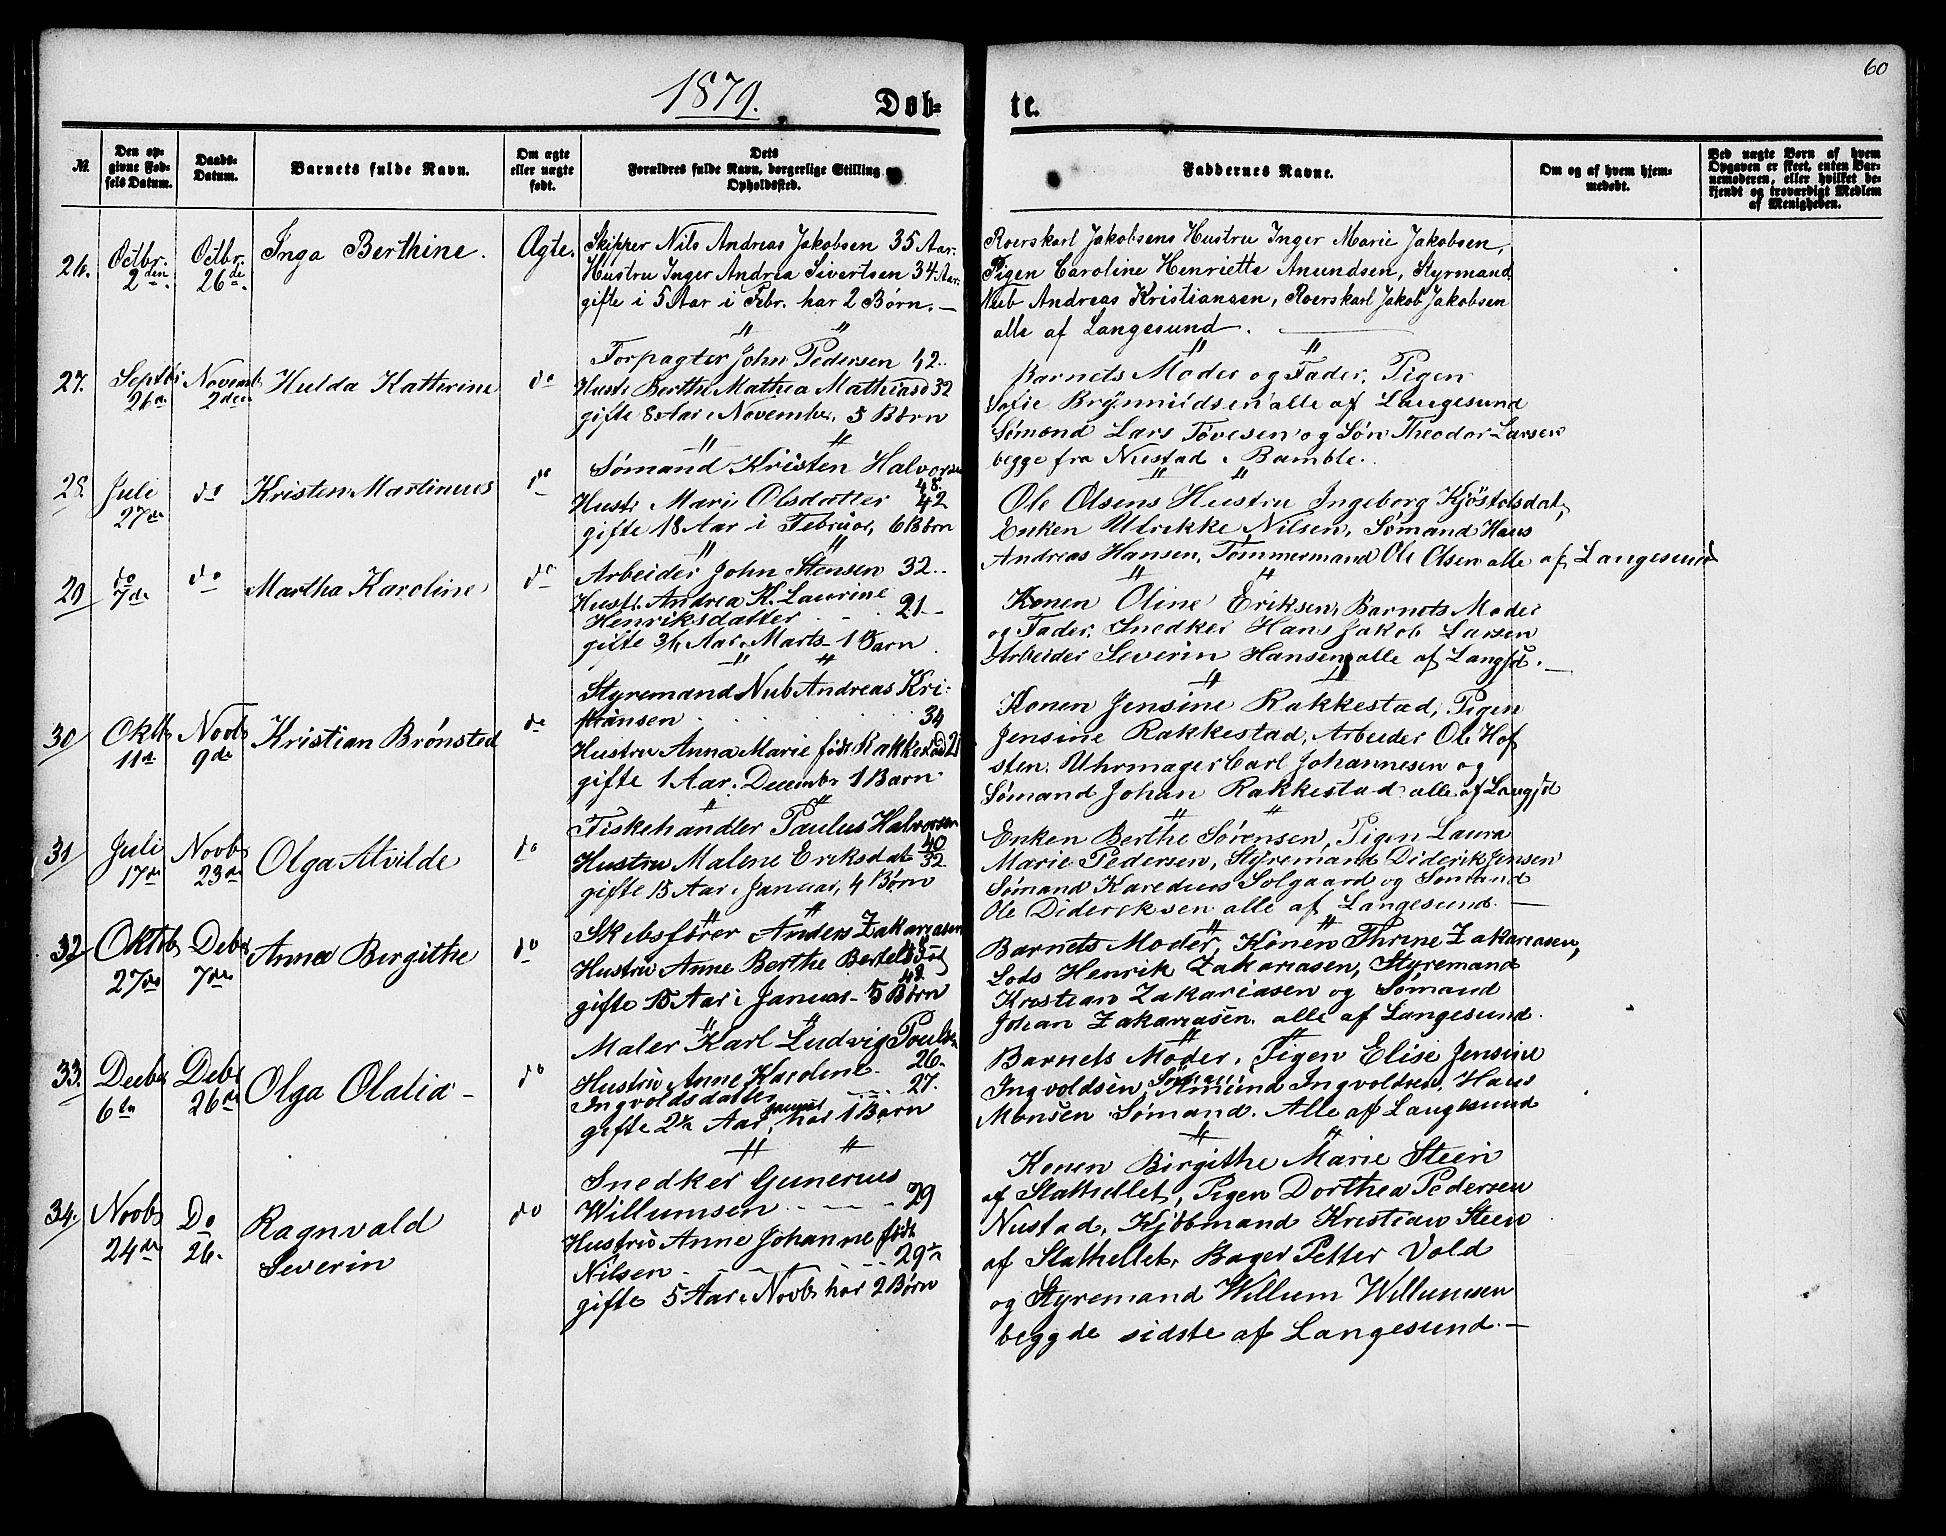 60
1879.
Døb-
te.
№
Den op-
givne Fød-
sels Datum.
Daabs-
Datum.
Barnets fulde Navn.
Om ægte
eller uægte
født.
Dets
Forældres fulde Navn, borgerlige Stilling og
Opholdssted.
Faddernes Navne.
Om og af hvem hjem-
medøbt.
Ved uægte Børn af hvem
Opgaven er skeet, enten Bar-
nemoderen, eller hvilket be-
kjendt og troværdigt Medlem
af Menigheden.
26.
Octbr.
2den
Octbr.
26de
Inga Berthine.
Ægte.
Skipper Nils Andreas Jakobsen 35 Aar.
Hustru Inger Andrea Sivertsen 34 Aar.
gifte i 5 Aar i Febr. har 2 Børn.
Roerskarl Jakobsens Hustru Inger Marie Jakobsen,
Pigen Caroline Henriette Anundsen, Styrmand
Nub Andreas Kristiansen, Roerskarl Jakob Jakobsen
alle af Langesund.
27.
Septbr
26de
Novemb
2den
Hulda Katterine
do
Forpagter John Pedersen 42..
Hustr Berthe Mathea Mathiasd 32
gifte 8 Aar i November, 5 Børn
Barnets Moder og Fader, Pigen
Sofie Brynnildsen alle af Langesund
Sømand Lars Tovesen og Søn Theodor Larsen
begge fra Nustad i Bamble.
28.
Juli
27de
do
Kristen Martinius
do
Sømand Kristen Halvorsen
48.
Hustr Mari Olsdatter 42
gifte 18 Aar i Februar, 6 Børn
Ole Olsens Hustru Ingeborg Kjöstolsdat,
Enken Ulrikke Nilsen, Sømand Hans
Andreas Hansen, Tømmermand Ole Olsen alle af Langesund
29
do
7de
do
Martha Karoline
do
Arbeider John Stensen 32..
Hustr. Andrea K. Laurine
Henriksdatter 21
gifte 3/4 Aar i Marts 1 Barn.
Konen Oline Eriksen, Barnets Moder
og Fader, Snedker Hans Jakob Larsen
Arbeider Severin Hansen alle af Langsd.
30
Oktb
11de
Novb
9de
Kristian Brønsted
do
Styremand Nub Andreas Kri-
stiansen 34
Hustru Anna Marie født Rakkestad
gifte 1 Aar i Decembr 1 Barn
Konen Jensine Rakkestad, Pigen
Jensine Rakkestad, Arbeider Ole Hof
sten. Uhrmager Carl Johannesen og
Sømand Johan Rakkestad alle af Langsd
31
Juli
17de
Novb
23de
Olga Alvilde
do
Fiskehandler Paulus Halvorsen
40
Hustru Malene Eriksdat 32
gifte 15 Aar i Januar, 4 Børn
Enken Berthe Sørensen, Pigen Laura
Marie Pedersen, Styremand Diderik Jensen
Sømand Karedius Solgaard og Sømand
Ole Dideriksen alle af Langesund.
32
Oktb
27de
Debr
7de
Anna Birgithe
do
Skibsfører Anders Zakariasen
Hustru Anne Berthe Bertels
48.
gifte 15 Aar i Januar 5 Børn
Barnets Moder, Konen Thrine Zakariasen,
Lods Henrik Zakariasen, Styremand
Kristian Zakariasen og Sømand
Johan Zakariasen alle af Langesund.
33.
Decbr
6te
Debr
26de
Olga Olalia
do
Maler Karl Ludvig Pouls
26.
Hustru Anne Karoline 27.
Ingvoldsdatter
gifte 2 Aar, Januar har 1 Barn
Barnets Moder, Pigen Elise Jensine
Ingvoldsen, Sømand Amund Ingvoldsen, Hans
Monsen Sømand. Alle af Langesund
34.
Novb
24de
Do
26.
Ragnvald
Severin
do
Snedker Gunerius
Willumsen 29
Hustru Anne Johanne født
Nilsen 29
gifte 5 Aar i Novb har 2 Børn
Konen Birgithe Marie Steen
af Stathellet, Pigen Dorthea Pedersen
Nustad, Kjöbmand Kristian Steen
af Stathellet, Bager Petter Vold
og Styremand Willum Willumsen
begg de sidste af Langesund.